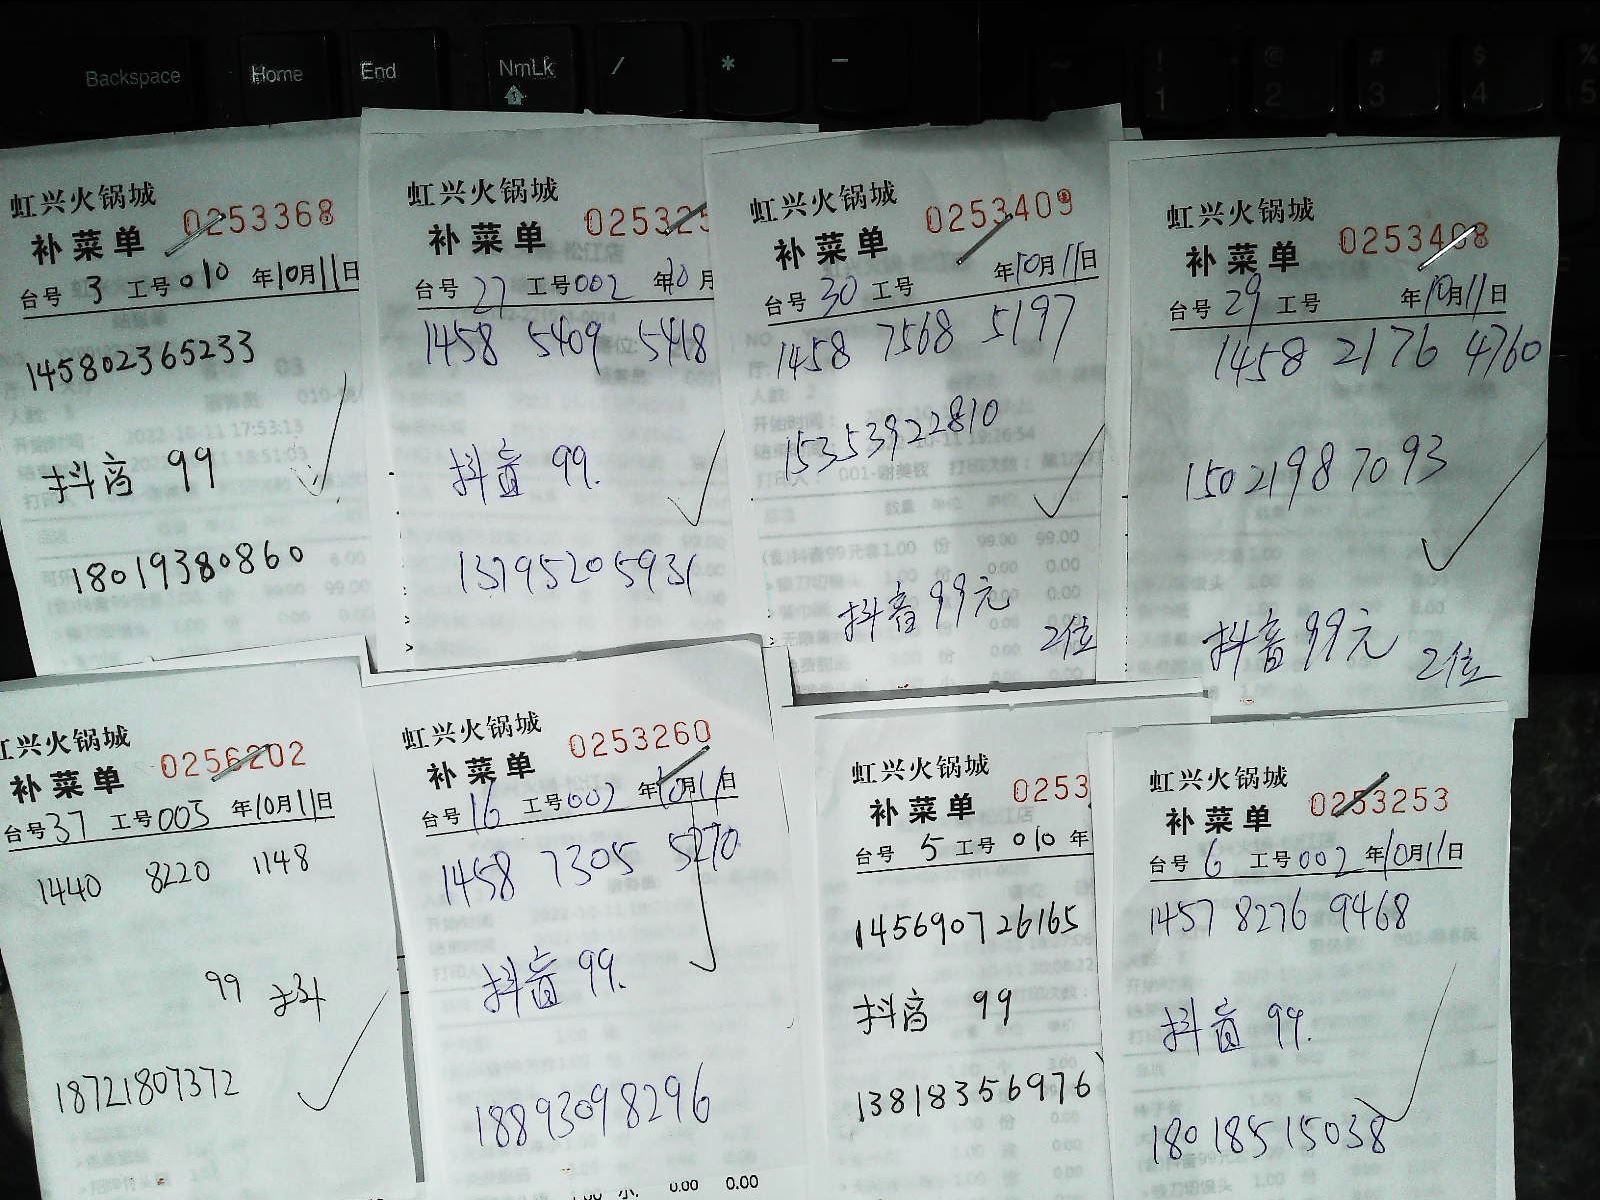 Backspace
Home
End
NmLk
/
*
-
!
1
@
2
#
3
$
4
%
5
虹兴火锅城
0253368
补菜单
台号 3 工号 010 年10月11日
145802365233
抖音 99
18019380860
虹兴火锅城
025325
补菜单
台号 27 工号002 年10月
1458 5409 5418
抖音 99.
13795205931
虹兴火锅城
0253409
补菜单
台号 30 工号 年10月11日
1458 7568 5197
15353922810
抖音 99元
2位
虹兴火锅城
0253408
补菜单
台号 29 工号 年10月11日
1458 2176 4760
15021987093
抖音 99元
2位
虹兴火锅城
0256202
补菜单
台号 37 工号 005 年10月11日
1440 8220 1148
99 抖
18721807372
虹兴火锅城
0253260
补菜单
台号 16 工号 002 年10月11日
1458 7305 5270
抖音 99.
18893098296
0.00 0.00
虹兴火锅城
0253
补菜单
台号 5 工号 010 年
145690726165
抖音 99
13818356976
虹兴火锅城
0253253
补菜单
台号 6 工号 002 年10月11日
1457 8276 9468
抖音 99.
18018515038